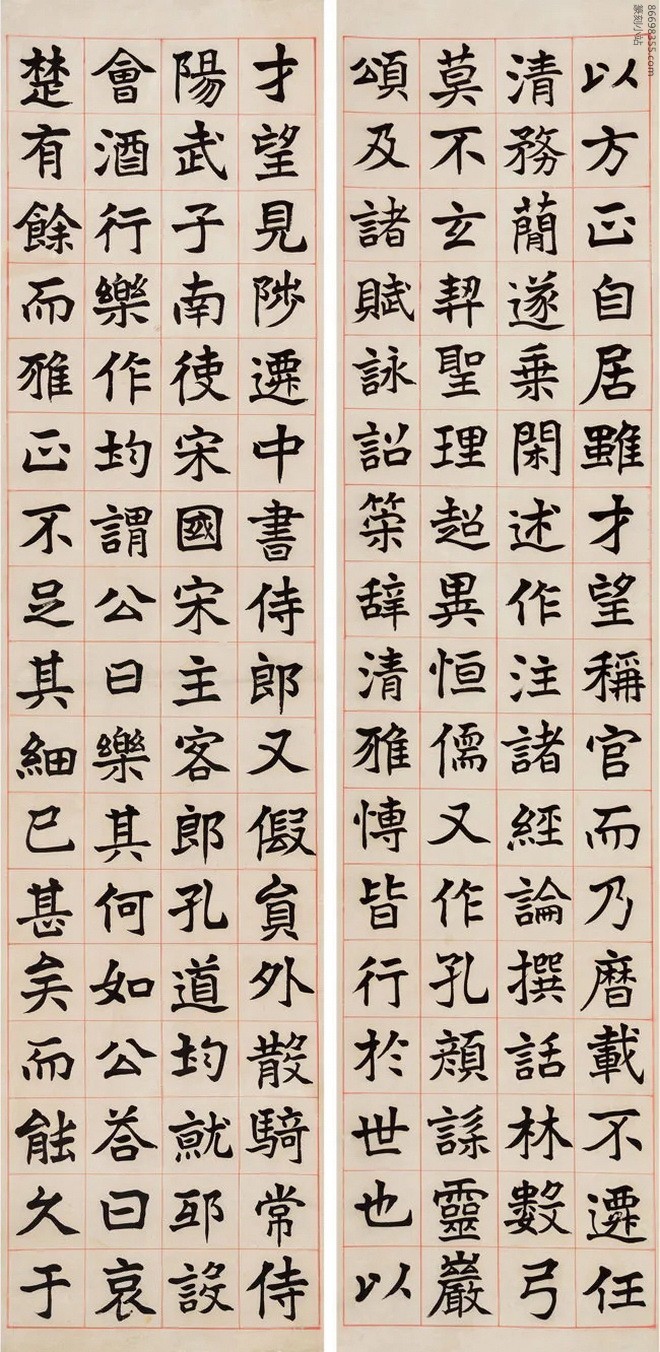 以方正自居雖才望稱官而乃曆載不遷任
清務蕳遂乗閑述作注諸經論撰話林數弓
莫不玄契聖理超異恒儒又作孔顔謡靈巖
頌及諸賦詠詔策辞清雅愽皆行於世也以
才望見陟遷中書侍郎又假貟外散騎常侍
陽武子南使宋國宋主客郎孔道均就邳設
會酒行樂作均謂公曰樂其何如公荅曰哀
楚有餘而雅正不足其細已甚矣而能久于
86698355.com
篆刻小站